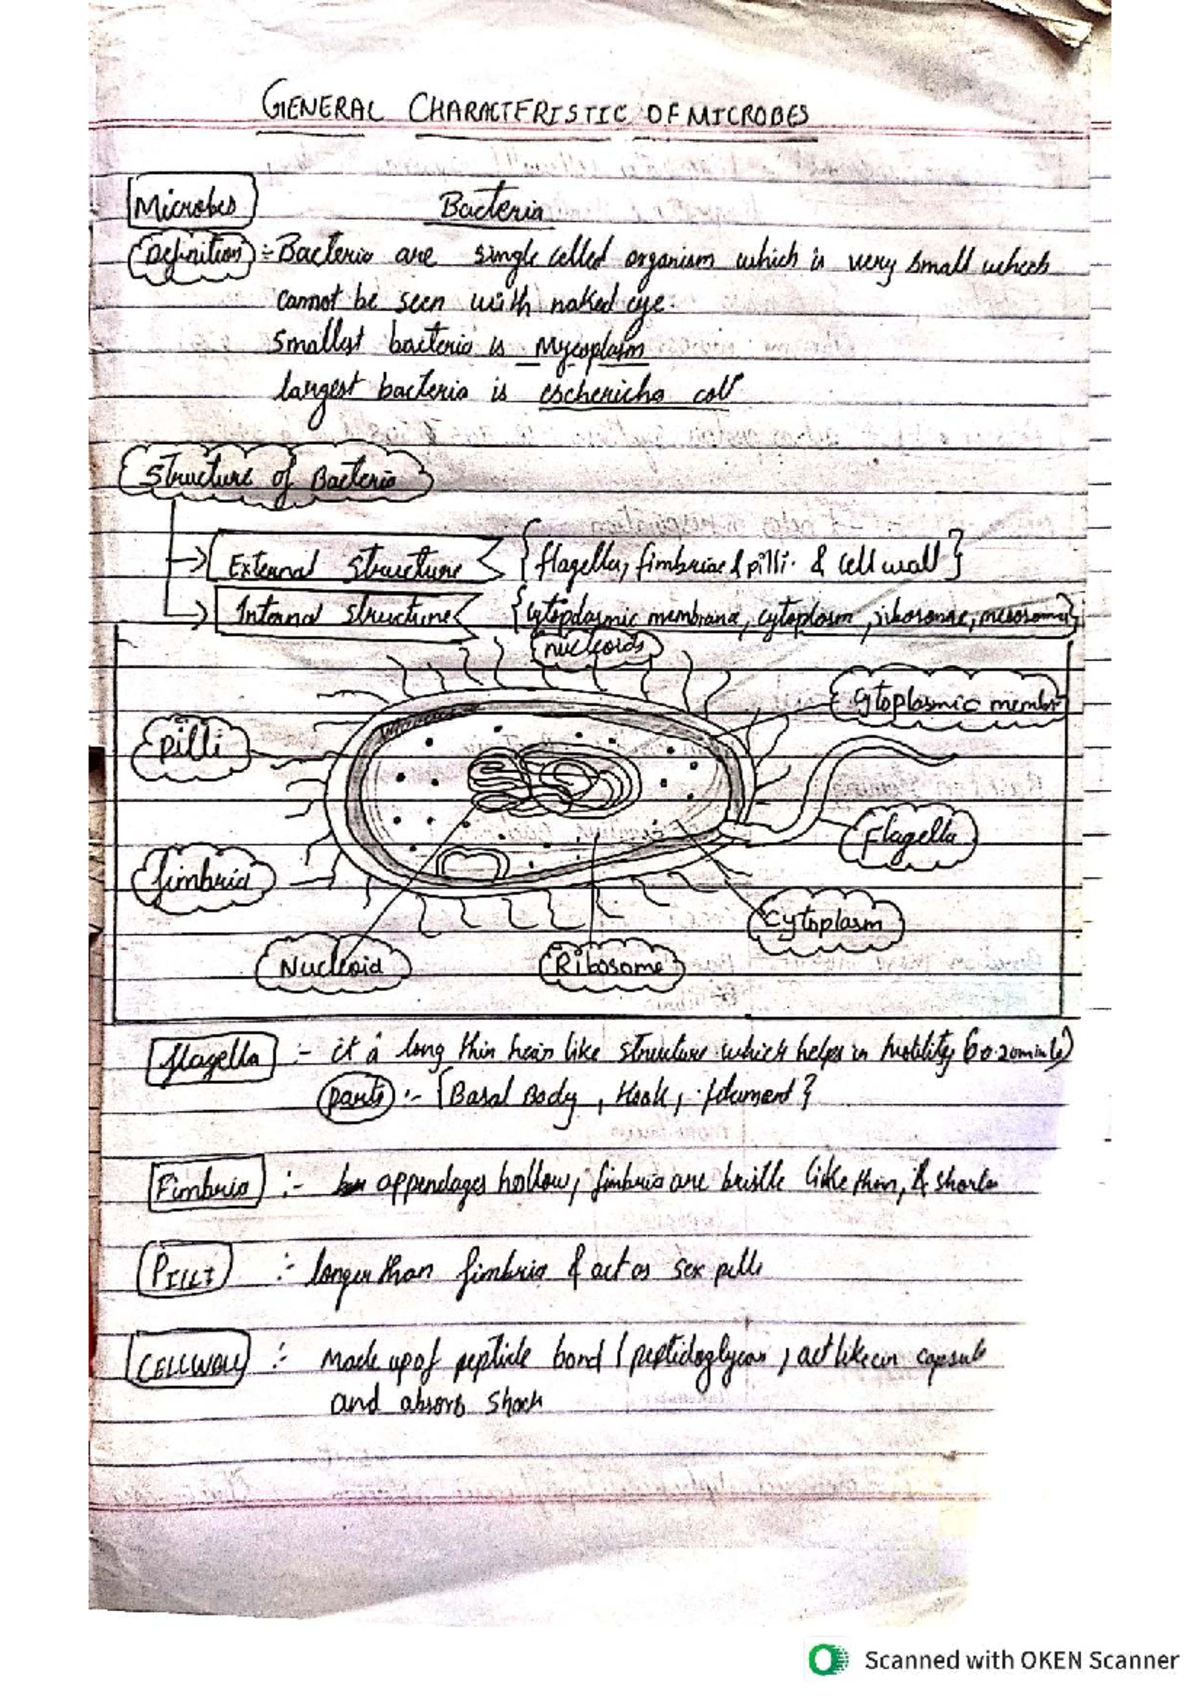 GENERAL CHARACTERISTIC OF MICROBES
Microbes
Bacteria
Definition :- Bacteria are single celled organism which is very small which
cannot be seen with naked eye.
Smallest bacteria is Mycoplasm
largest bacteria is eschericha coli
Structure of Bacteria
External structure { flagella, fimbriae & pilli. & cell wall }
Internal structure { cytoplasmic membrane, cytoplasm, ribosome, mesosoma }
nucleoids
Cytoplasmic membr
Pilli
Flagella
fimbria
Cytoplasm
Nucleoid
Ribosome
flagella :- it a long thin hair like structure which helps in motility
parts :- { Basal Body, Hook, filament }
Fimbria :- appendages hollow, fimbria are bristle like thin, & shorte
PILLI :- longer than fimbria & act as sex pilli
CELLWALL :- Made up of peptide bond / peptidoglycan, act like an capsule
and absorb shock
Scanned with OKEN Scanner